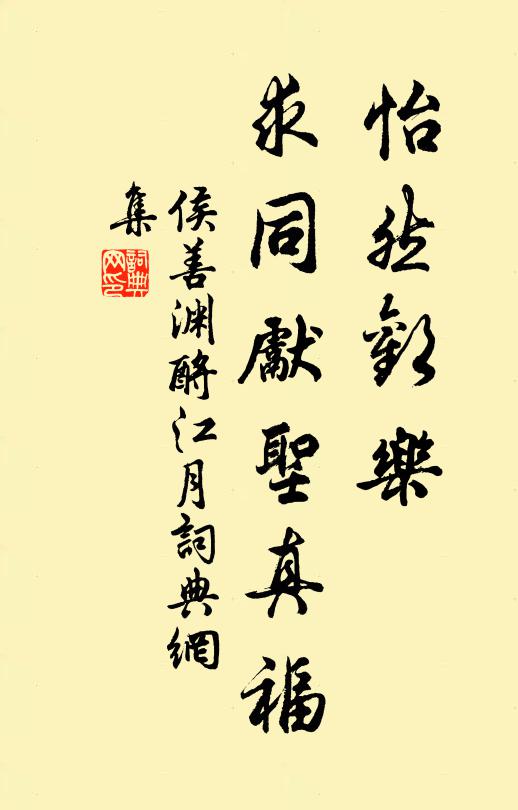 怡然歡樂
求同獻聖真福
侯善渊酹江月詞典網
集
詞典
网印